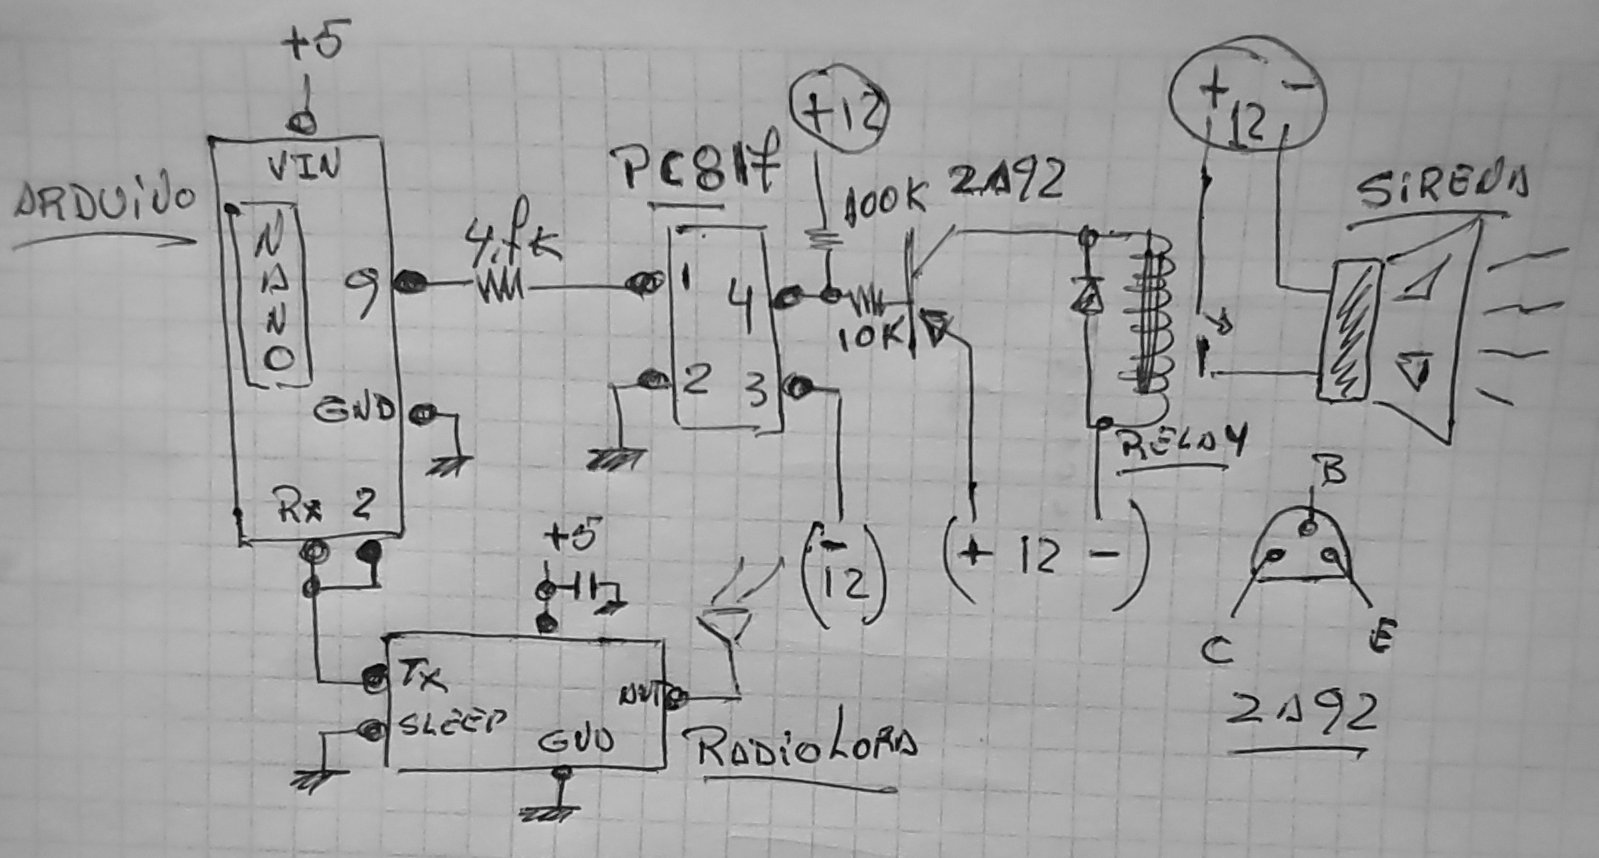 +5
ARDUiNO
VIN
NANO
9
GND
Rx 2
4.7K
PC817
1
2
4
3
+12
100K
10K
2A92
+ -
12
SiRENA
RELAY
-
12
+ 12 -
B
C
E
2A92
+5
Tx
SLEEP
GND
ANT
RADiOLORA